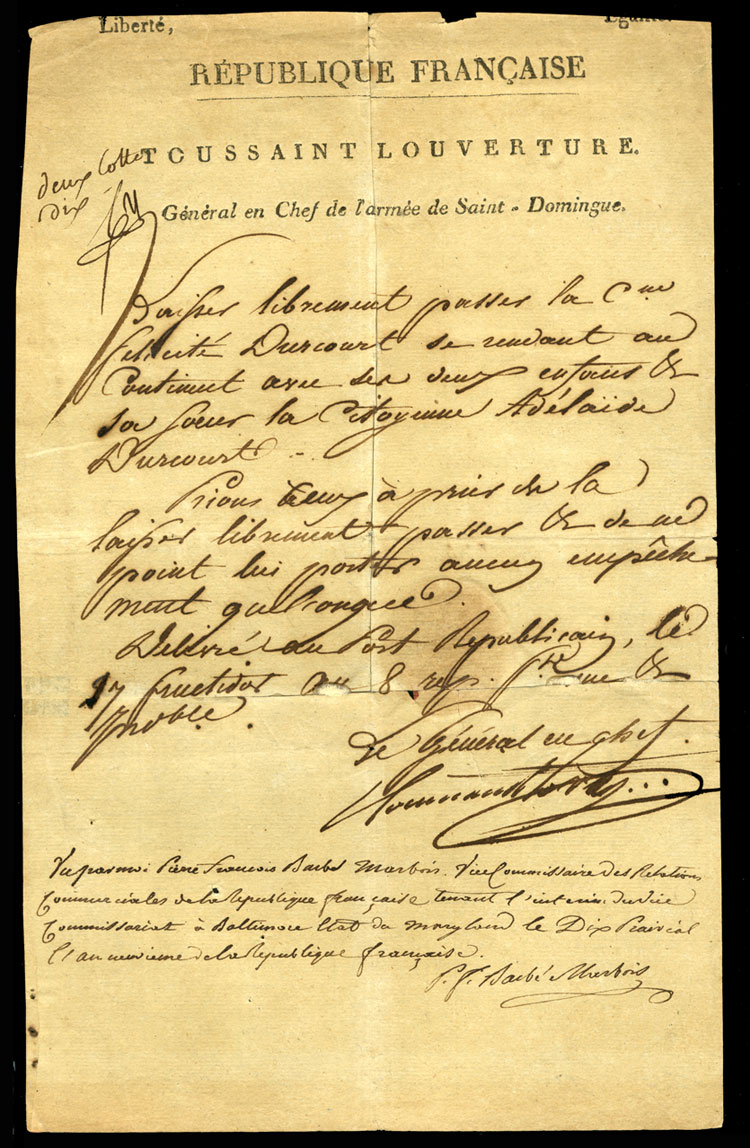 Liberté, Égalité.
RÉPUBLIQUE FRANÇAISE
TOUSSAINT LOUVERTURE.
deux Cotte
dix
Général en Chef de l'armée de Saint-Domingue.
Laisser librement passer la Cne
felicité Durcourt se rendant au
Continent avec ses deux enfans &
sa soeur la Citoyenne Adélaïde
Durcourt
Prions à de la
laisser librement passer & de ne
point lui porter aucun empêche-
ment quelconque.
Délivré au Port Republicain, le
17 fructidor an 8 rep. fse une &
Le Général en chef.
Toussaint Louverture
Vu par moi Pierre François Barbé Marbois. Vice Commissaire des Relations
Commerciales de la Republique française tenant l'interim du vice
Commissariat à Baltimore Etat du Maryland le Dix Prairéal
l'an neuvieme de la Republique française.
P. F. Barbé Marbois